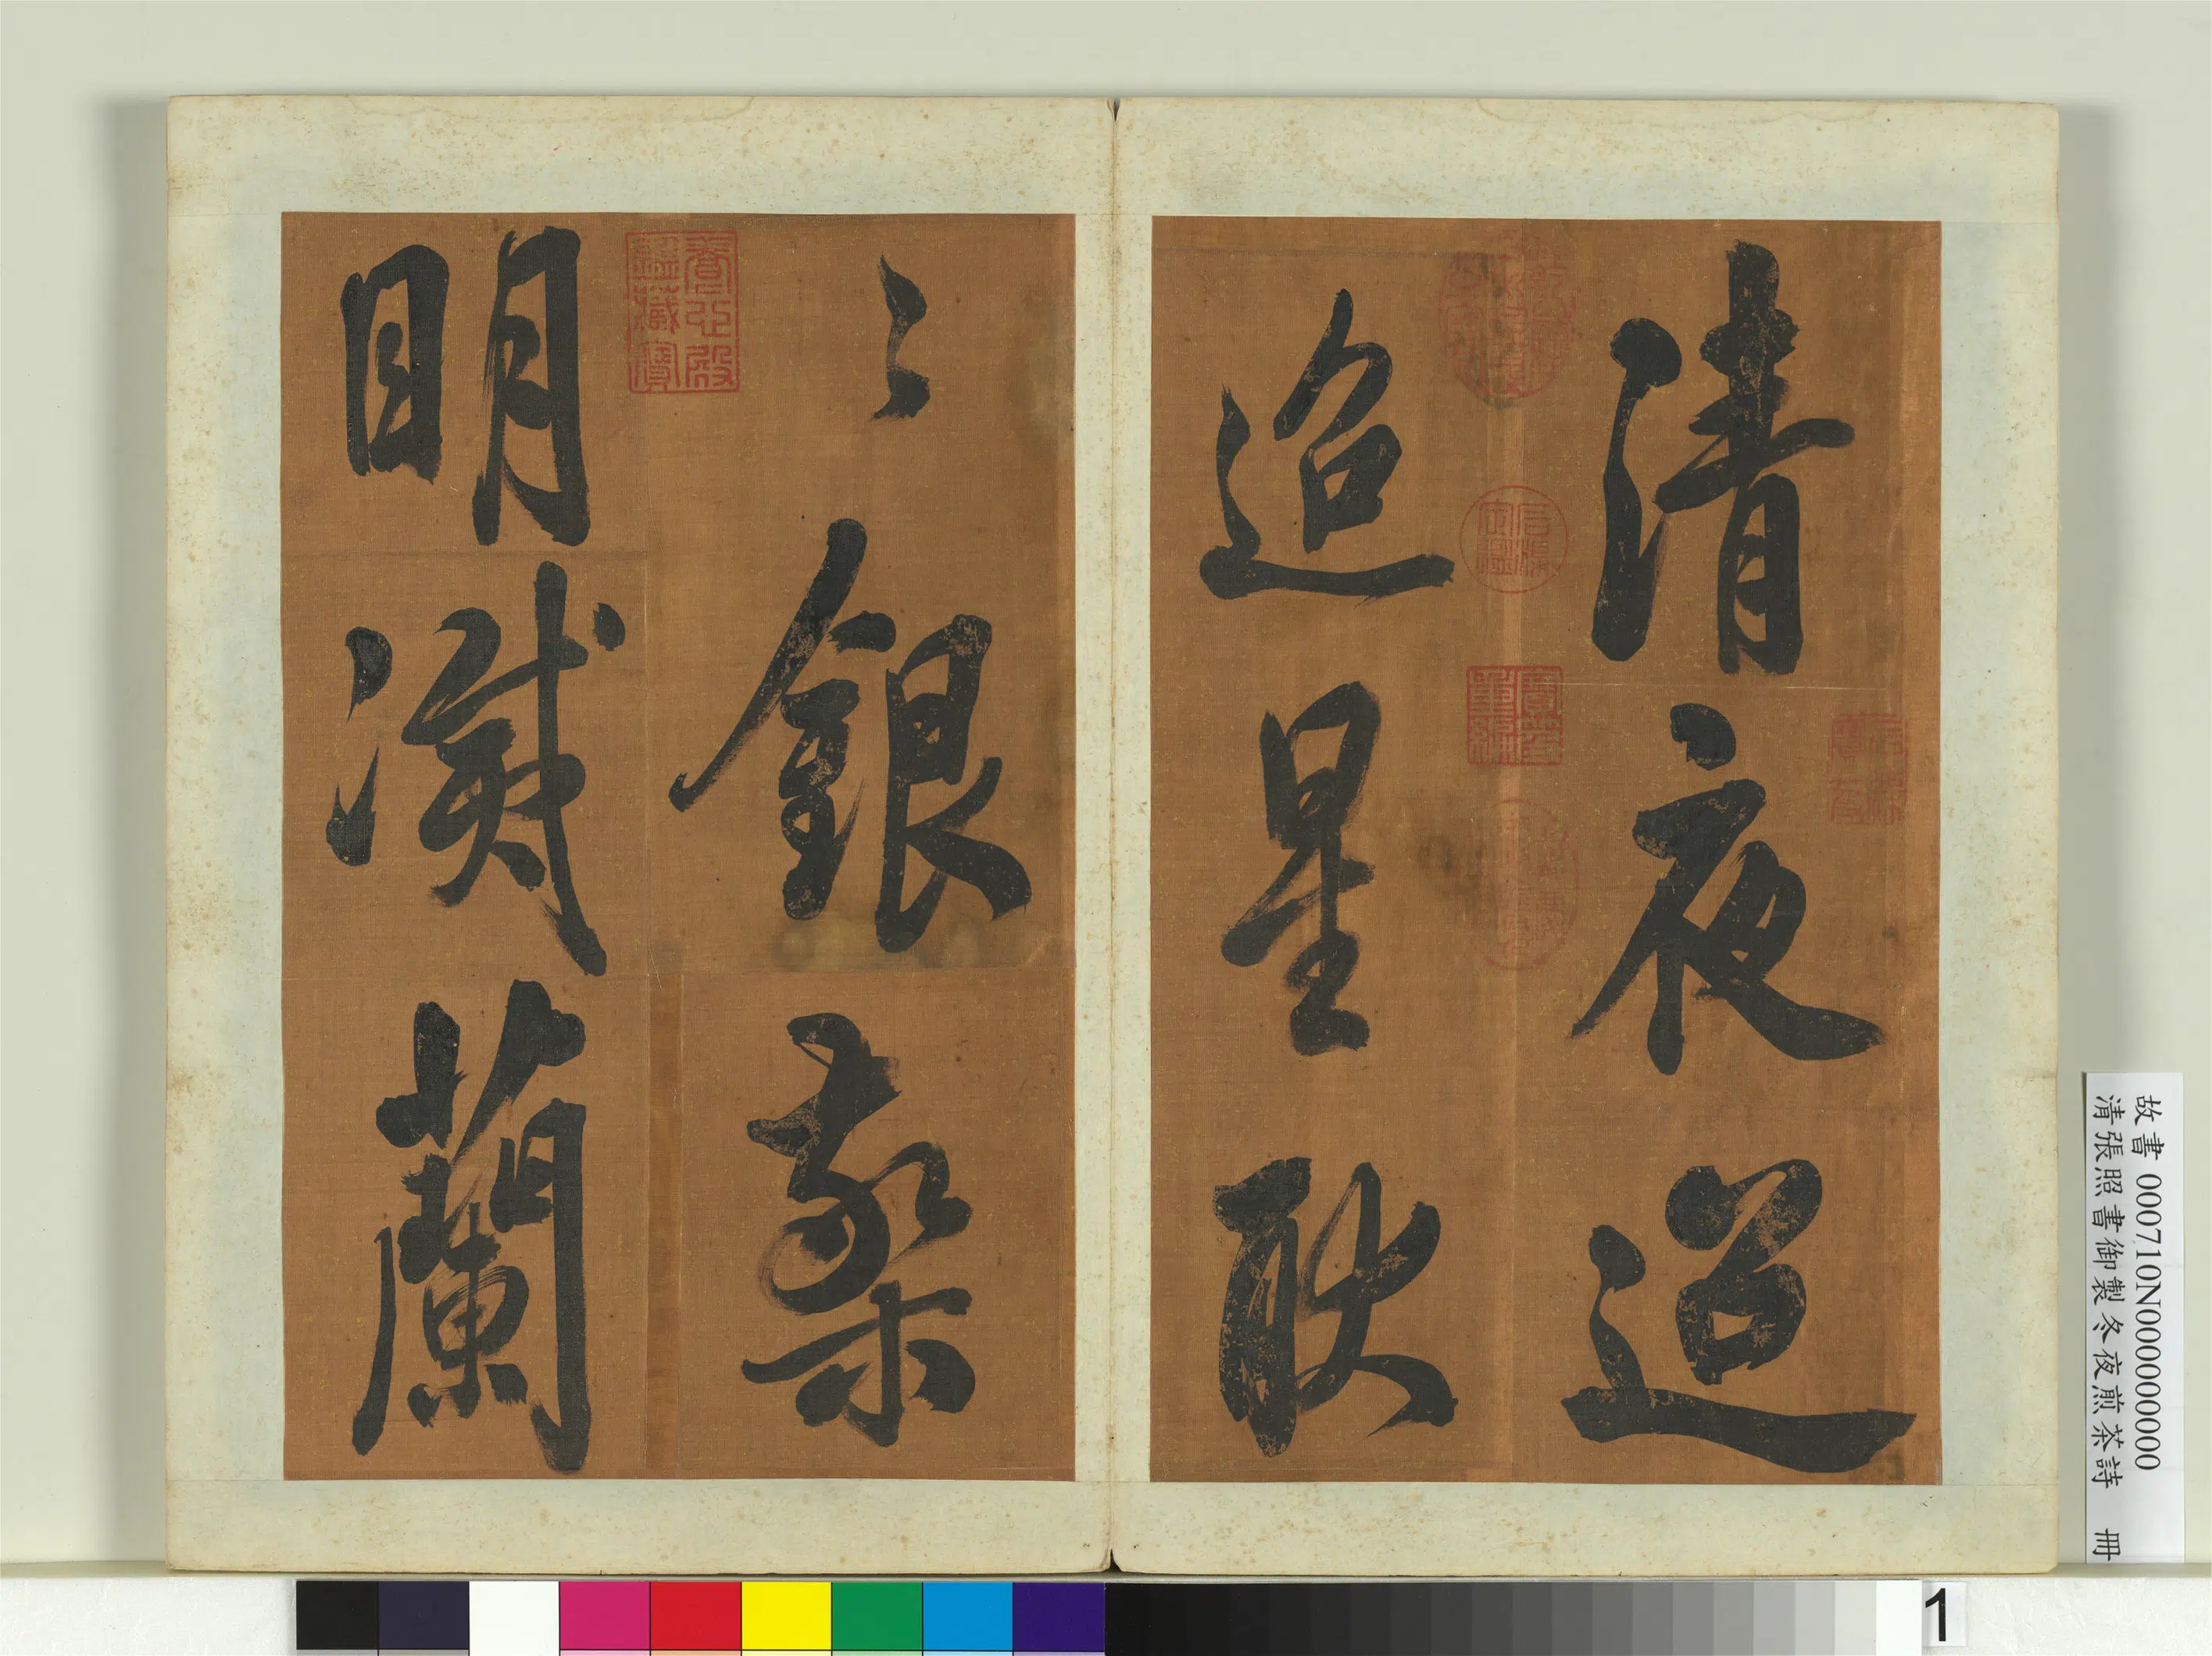 清夜迢
迢星耿
〻銀檠
明滅蘭
石渠定鑑
寶笈重編
養心殿鑑藏寶
故書000710N000000000
清張照書御製冬夜煎茶詩 冊
1